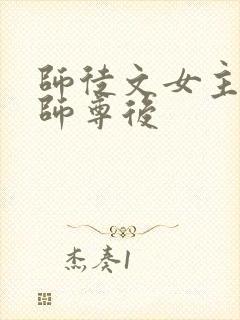 師徒文女主
師尊後
杰奏1